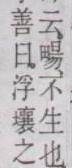 云、畼、不生也
善曰、浮壤之